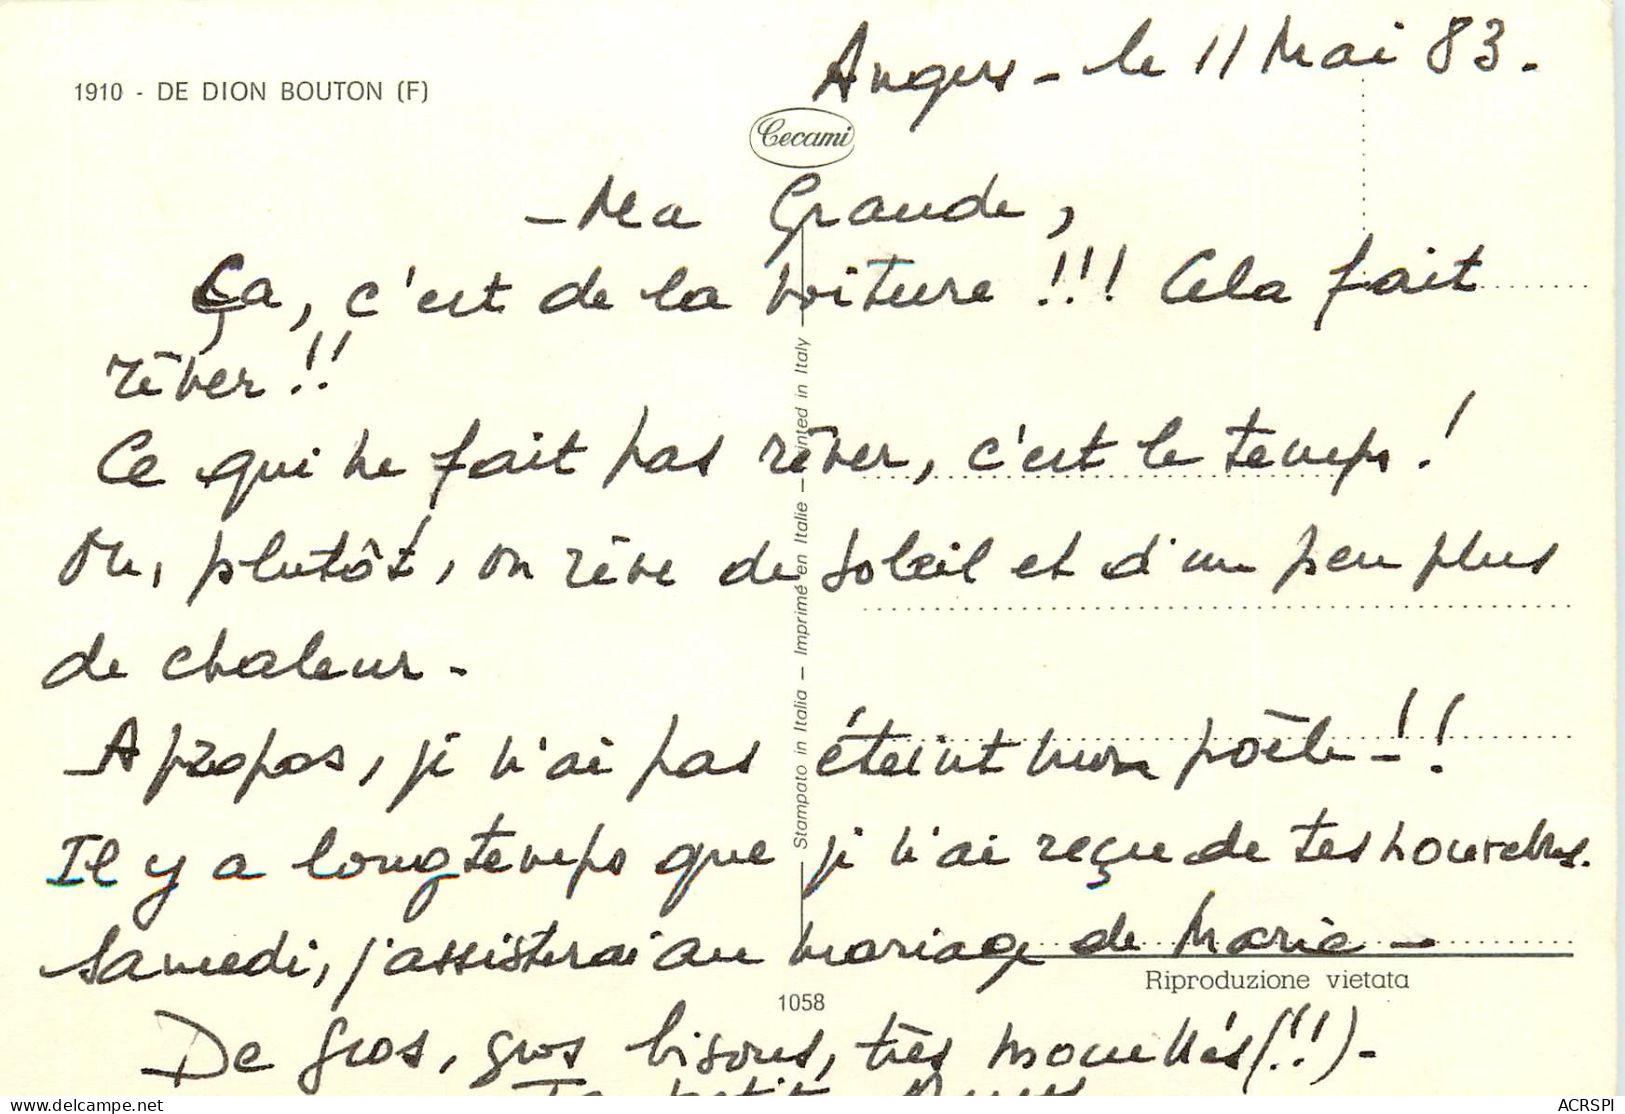 Angers - le 11 Mai 83.
1910 - DE DION BOUTON (F)
Cecami
- Ma Grande,
Ça, c'est de la voiture !!! Cela fait
rêver !!
Ce qui ne fait pas rêver, c'est le temps !
Ou, plutôt, on rêve de soleil et d'un peu plus
de chaleur -
A propos, je n'ai pas éteint mon poêle - !!
Il y a longtemps que je n'ai reçu de tes nouvelles.
Samedi, j'assisterai au mariage de Marie -
De gros, gros bisous, très mouillés (!!) -
Ta petite
Stampato in Italia - Imprimé en Italie - Printed in Italy
Riproduzione vietata
1058
www.delcampe.net
ACRSPI